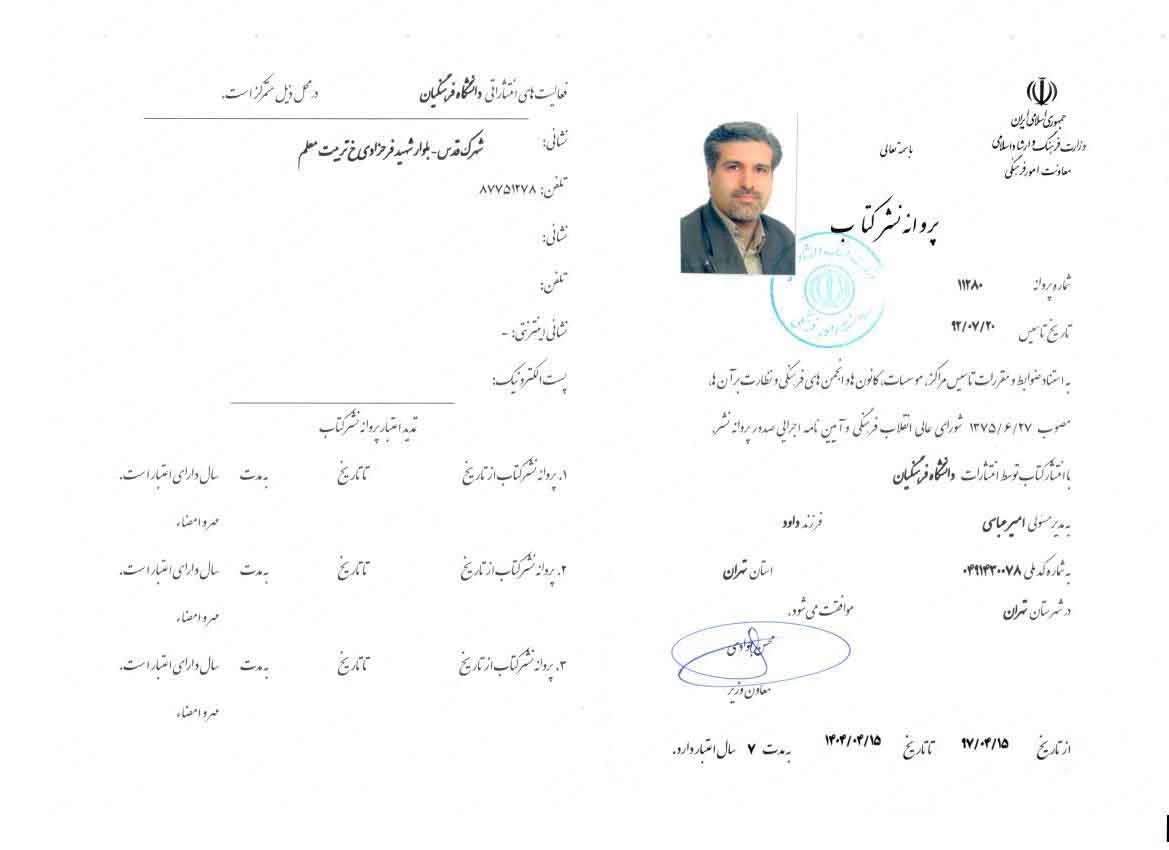 جمهوری اسلامی ایران
وزارت فرهنگ و ارشاد اسلامی
معاونت امور فرهنگی
باسمه تعالی
پروانه نشر کتاب
شماره پروانه ۱۱۲۸۰
تاریخ تاسیس ۹۲/۰۷/۲۰
به استناد ضوابط و مقررات تاسیس مراکز، موسسات، کانون ها و انجمن های فرهنگی و نظارت بر آن ها،
مصوب ۱۳۷۵/۶/۲۷ شورای عالی انقلاب فرهنگی و آیین نامه اجرایی صدور پروانه نشر،
با انتشار کتاب توسط انتشارات دانشگاه فرهنگیان
به مدیر مسئولی امیر عباسی فرزند داود
به شماره کد ملی ۰۴۹۱۴۳۰۰۷۸ استان تهران
در شهرستان تهران موافقت می شود.
محسن جوادی
معاون وزیر
از تاریخ ۹۷/۰۴/۱۵ تا تاریخ ۱۴۰۴/۰۴/۱۵ به مدت ۷ سال اعتبار دارد.
فعالیت های انتشاراتی دانشگاه فرهنگیان در محل ذیل متمرکز است.
نشانی: شهرک قدس- بلوار شهید فرحزادی خ تربیت معلم
تلفن: ۸۷۷۵۱۲۷۸
نشانی:
تلفن:
نشانی اینترنتی: -
پست الکترونیک:
تمدید اعتبار پروانه نشر کتاب
۱. پروانه نشر کتاب از تاریخ تا تاریخ به مدت سال دارای اعتبار است.
مهر و امضاء
۲. پروانه نشر کتاب از تاریخ تا تاریخ به مدت سال دارای اعتبار است.
مهر و امضاء
۳. پروانه نشر کتاب از تاریخ تا تاریخ به مدت سال دارای اعتبار است.
مهر و امضاء